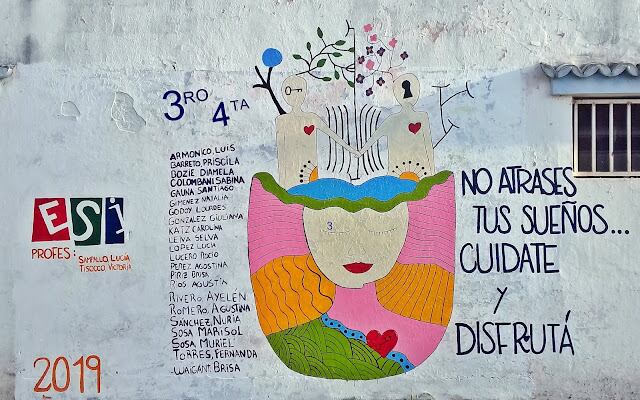 3RO 4TA
ARMONICO, LUIS
BARRETO, PRISCILA
BOZIE DIAMELA
COLOMBANI SABINA
GAUNA SANTIAGO
GIMENEZ NATALIA
GODOY LOURDES
GONZALEZ GIULIANA
KATZ CAROLINA
LEIVA SELVA
LOPEZ LUCÍA
LUCERO ROCIO
PEREZ AGOSTINA
PIRIZ BRISA
RIOS AGUSTÍN
RIVERO AYELÉN
ROMERO, AGUSTINA
SÁNCHEZ, NURIA
SOSA MARISOL
SOSA MURIEL
TORRES, FERNANDA
WAIGANT, BRISA
ESi
PROFES:
LUCÍA
TISOCCO VICTORIA
2019
3
NO ATRASES
TUS SUEÑOS...
CUIDATE
Y
DISFRUTÁ